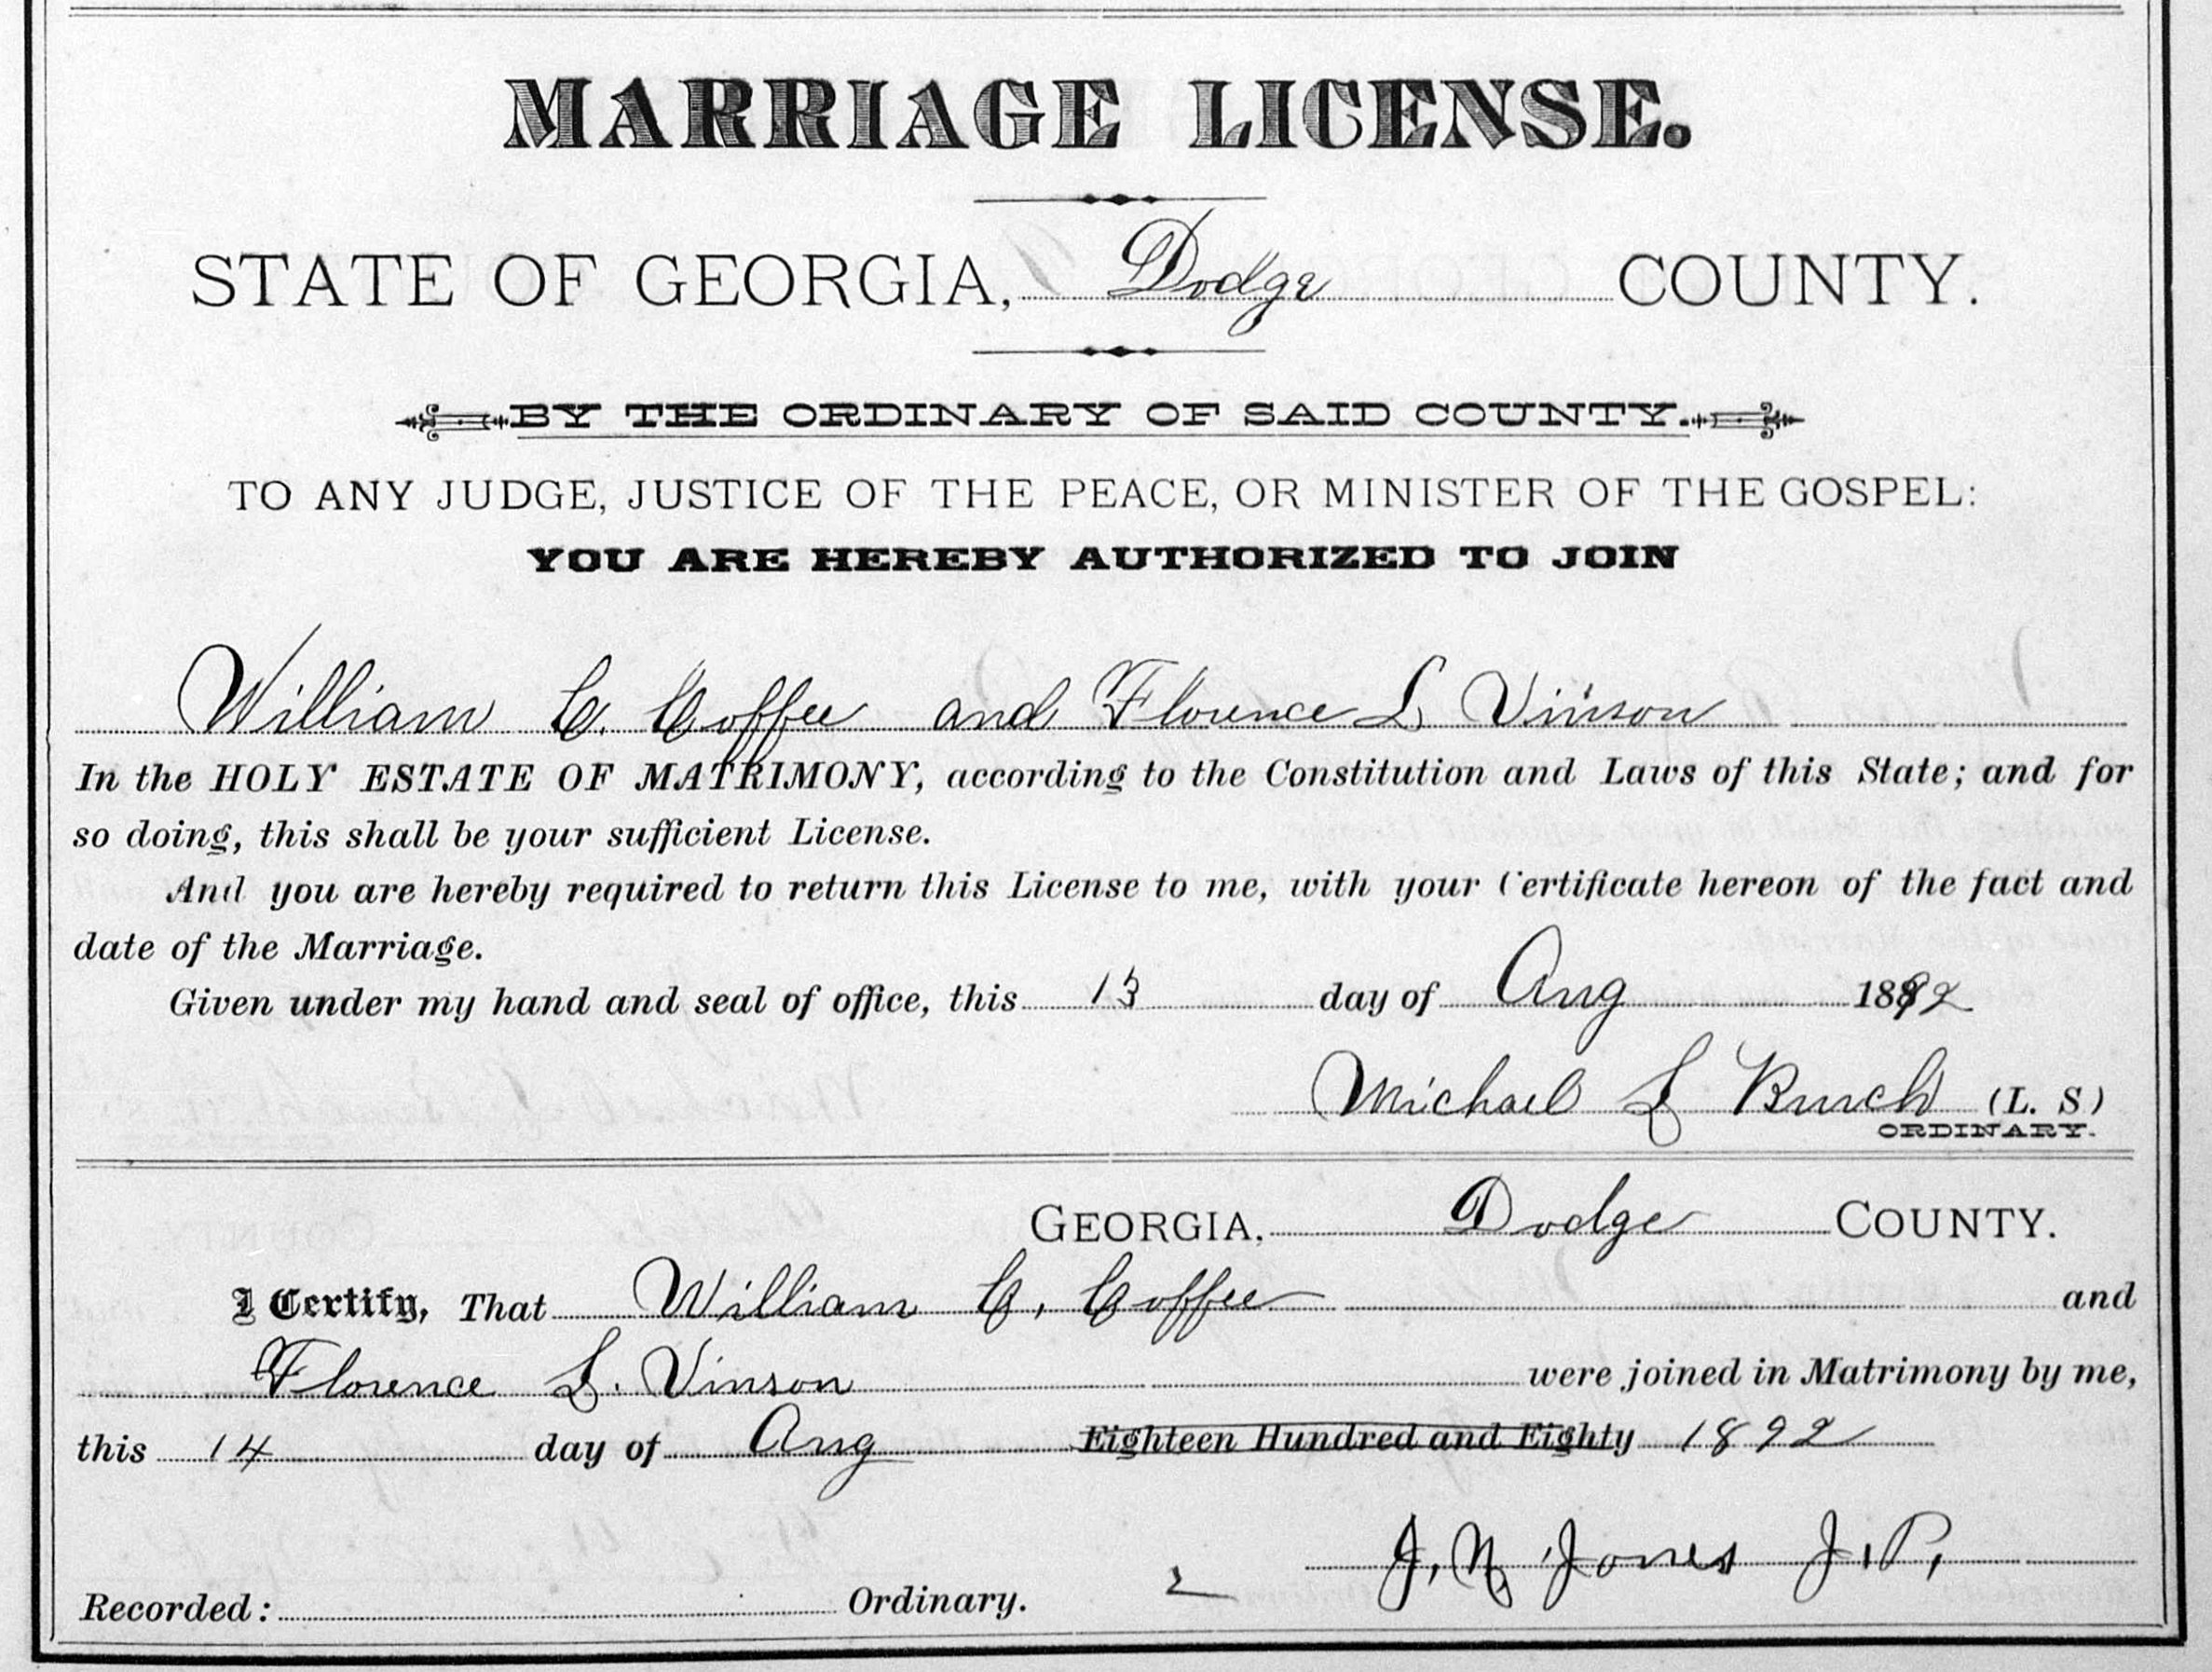 MARRIAGE LICENSE.
STATE OF GEORGIA, Dodge COUNTY.
BY THE ORDINARY OF SAID COUNTY.
TO ANY JUDGE, JUSTICE OF THE PEACE, OR MINISTER OF THE GOSPEL:
YOU ARE HEREBY AUTHORIZED TO JOIN
William C. Coffee and Florence L Vinson
In the HOLY ESTATE OF MATRIMONY, according to the Constitution and Laws of this State; and for
so doing, this shall be your sufficient License.
And you are hereby required to return this License to me, with your Certificate hereon of the fact and
date of the Marriage.
Given under my hand and seal of office, this 13 day of Aug 1892
Michael L Burch (L. S)
ORDINARY.
GEORGIA, Dodge COUNTY.
I Certify, That William C. Coffee and
Florence L. Vinson were joined in Matrimony by me,
this 14 day of Aug Eighteen Hundred and Eighty 1892
J. N. Jones J.P.
Recorded: Ordinary.